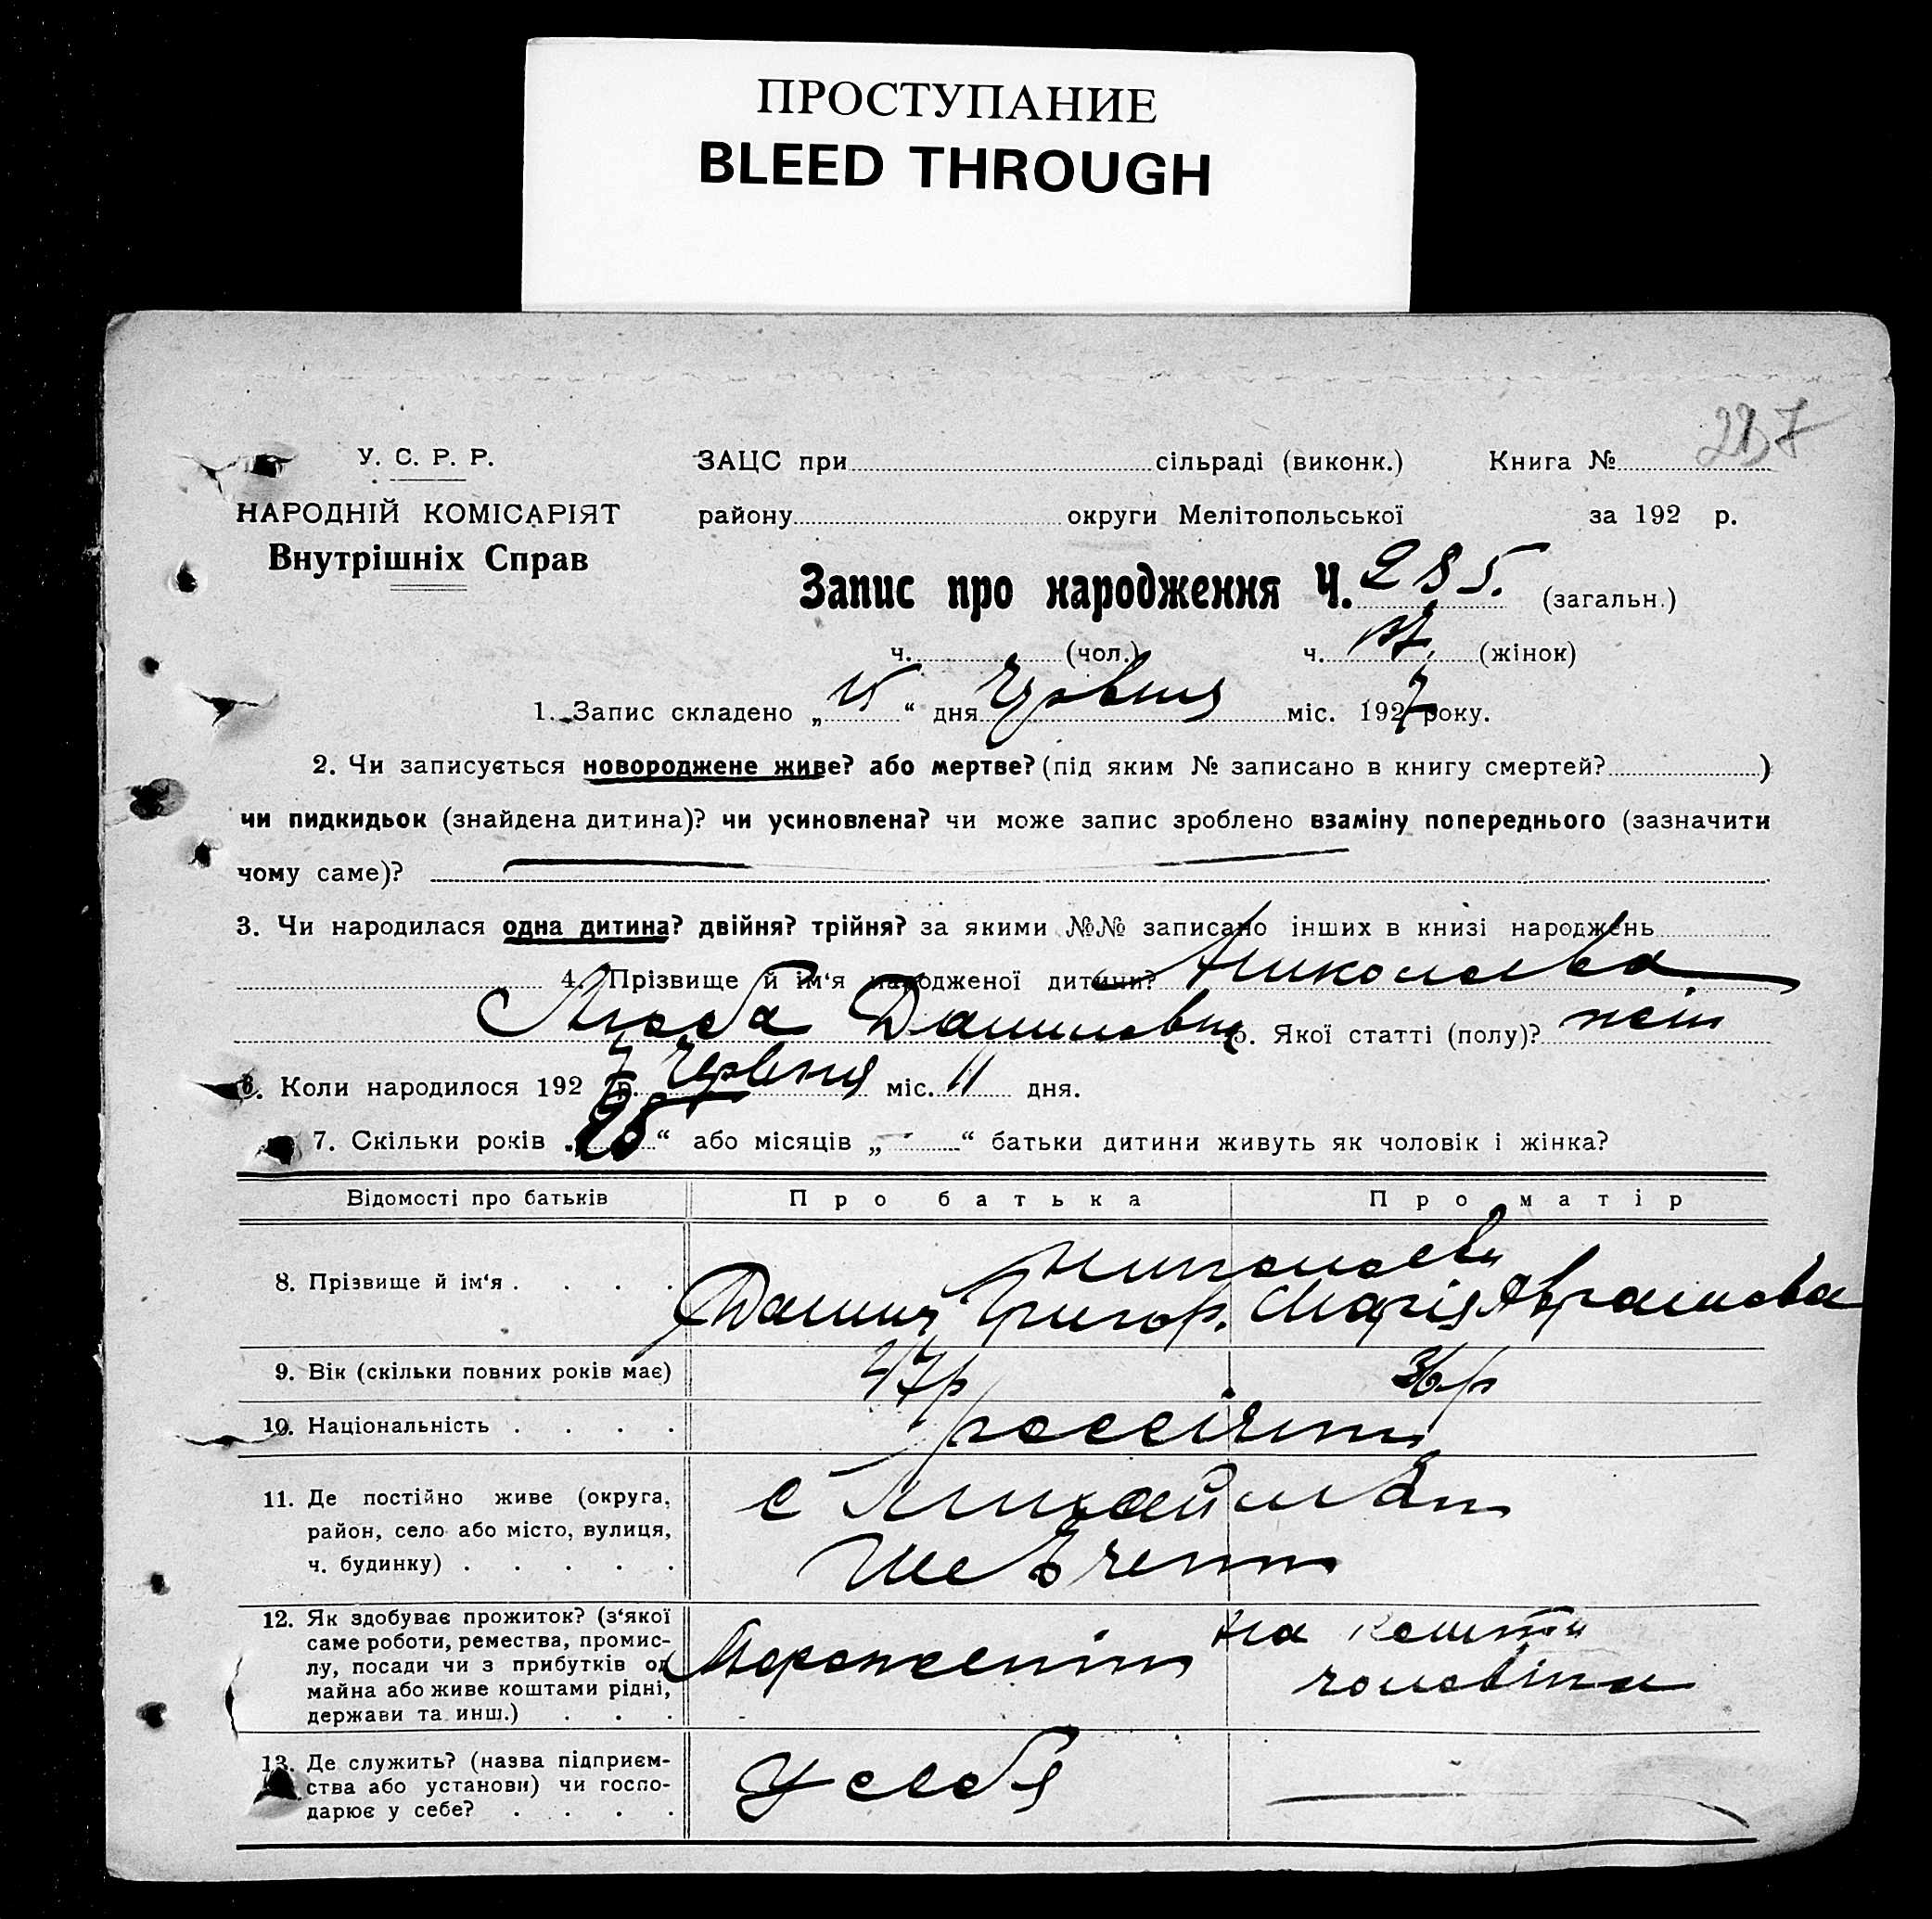 ПРОСТУПАНИЕ
BLEED THROUGH
287
У. С. Р. Р. ЗАЦС при сільраді (виконк.) Книга №
НАРОДНІЙ КОМІСАРІЯТ району округи Мелітопольської за 192 р.
Внутрішніх Справ
Запис про народження Ч. 285. (загальн.)
ч. (чол.) ч. (жінок)
1. Запис складено „15“ дня Червня міс. 1927 року.
2. Чи записується новороджене живе? або мертве? (під яким № записано в книгу смертей? )
чи пидкидьок (знайдена дитина)? чи усиновлена? чи може запис зроблено взаміну попереднього (зазначити
чому саме)?
3. Чи народилася одна дитина? двійня? трійня? за якими №№ записано інших в книзі народжень
4. Прізвище й ім‘я народженої дитини? Николаева
Люба Даниловна 5. Якої статті (полу)? жін
6. Коли народилося 1927 р. Червня міс. 11 дня.
7. Скільки років „ “ або місяців „-“ батьки дитини живуть як чоловік і жінка?
Відомості про батьків Про батька Про матір
Николаеви
8. Прізвище й ім‘я . . . . Данило Григор. Марія Аврамовна
9. Вік (скільки повних років має) 47р 36р
10. Національність . . . . россіяни
11. Де постійно живе (округа, с Михайлівка
район, село або місто, вулиця, Шевченк
ч. будинку) . . . . .
12. Як здобуває прожиток? (з‘якої на кошти
саме роботи, ремества, промис-
лу, посади чи з прибутків од Мороженик чоловіка
майна або живе коштами рідні,
держави та инш.) . . .
13. Де служить? (назва підприєм-
ства або установи) чи госпо- У себя
дарює у себе? . . . .